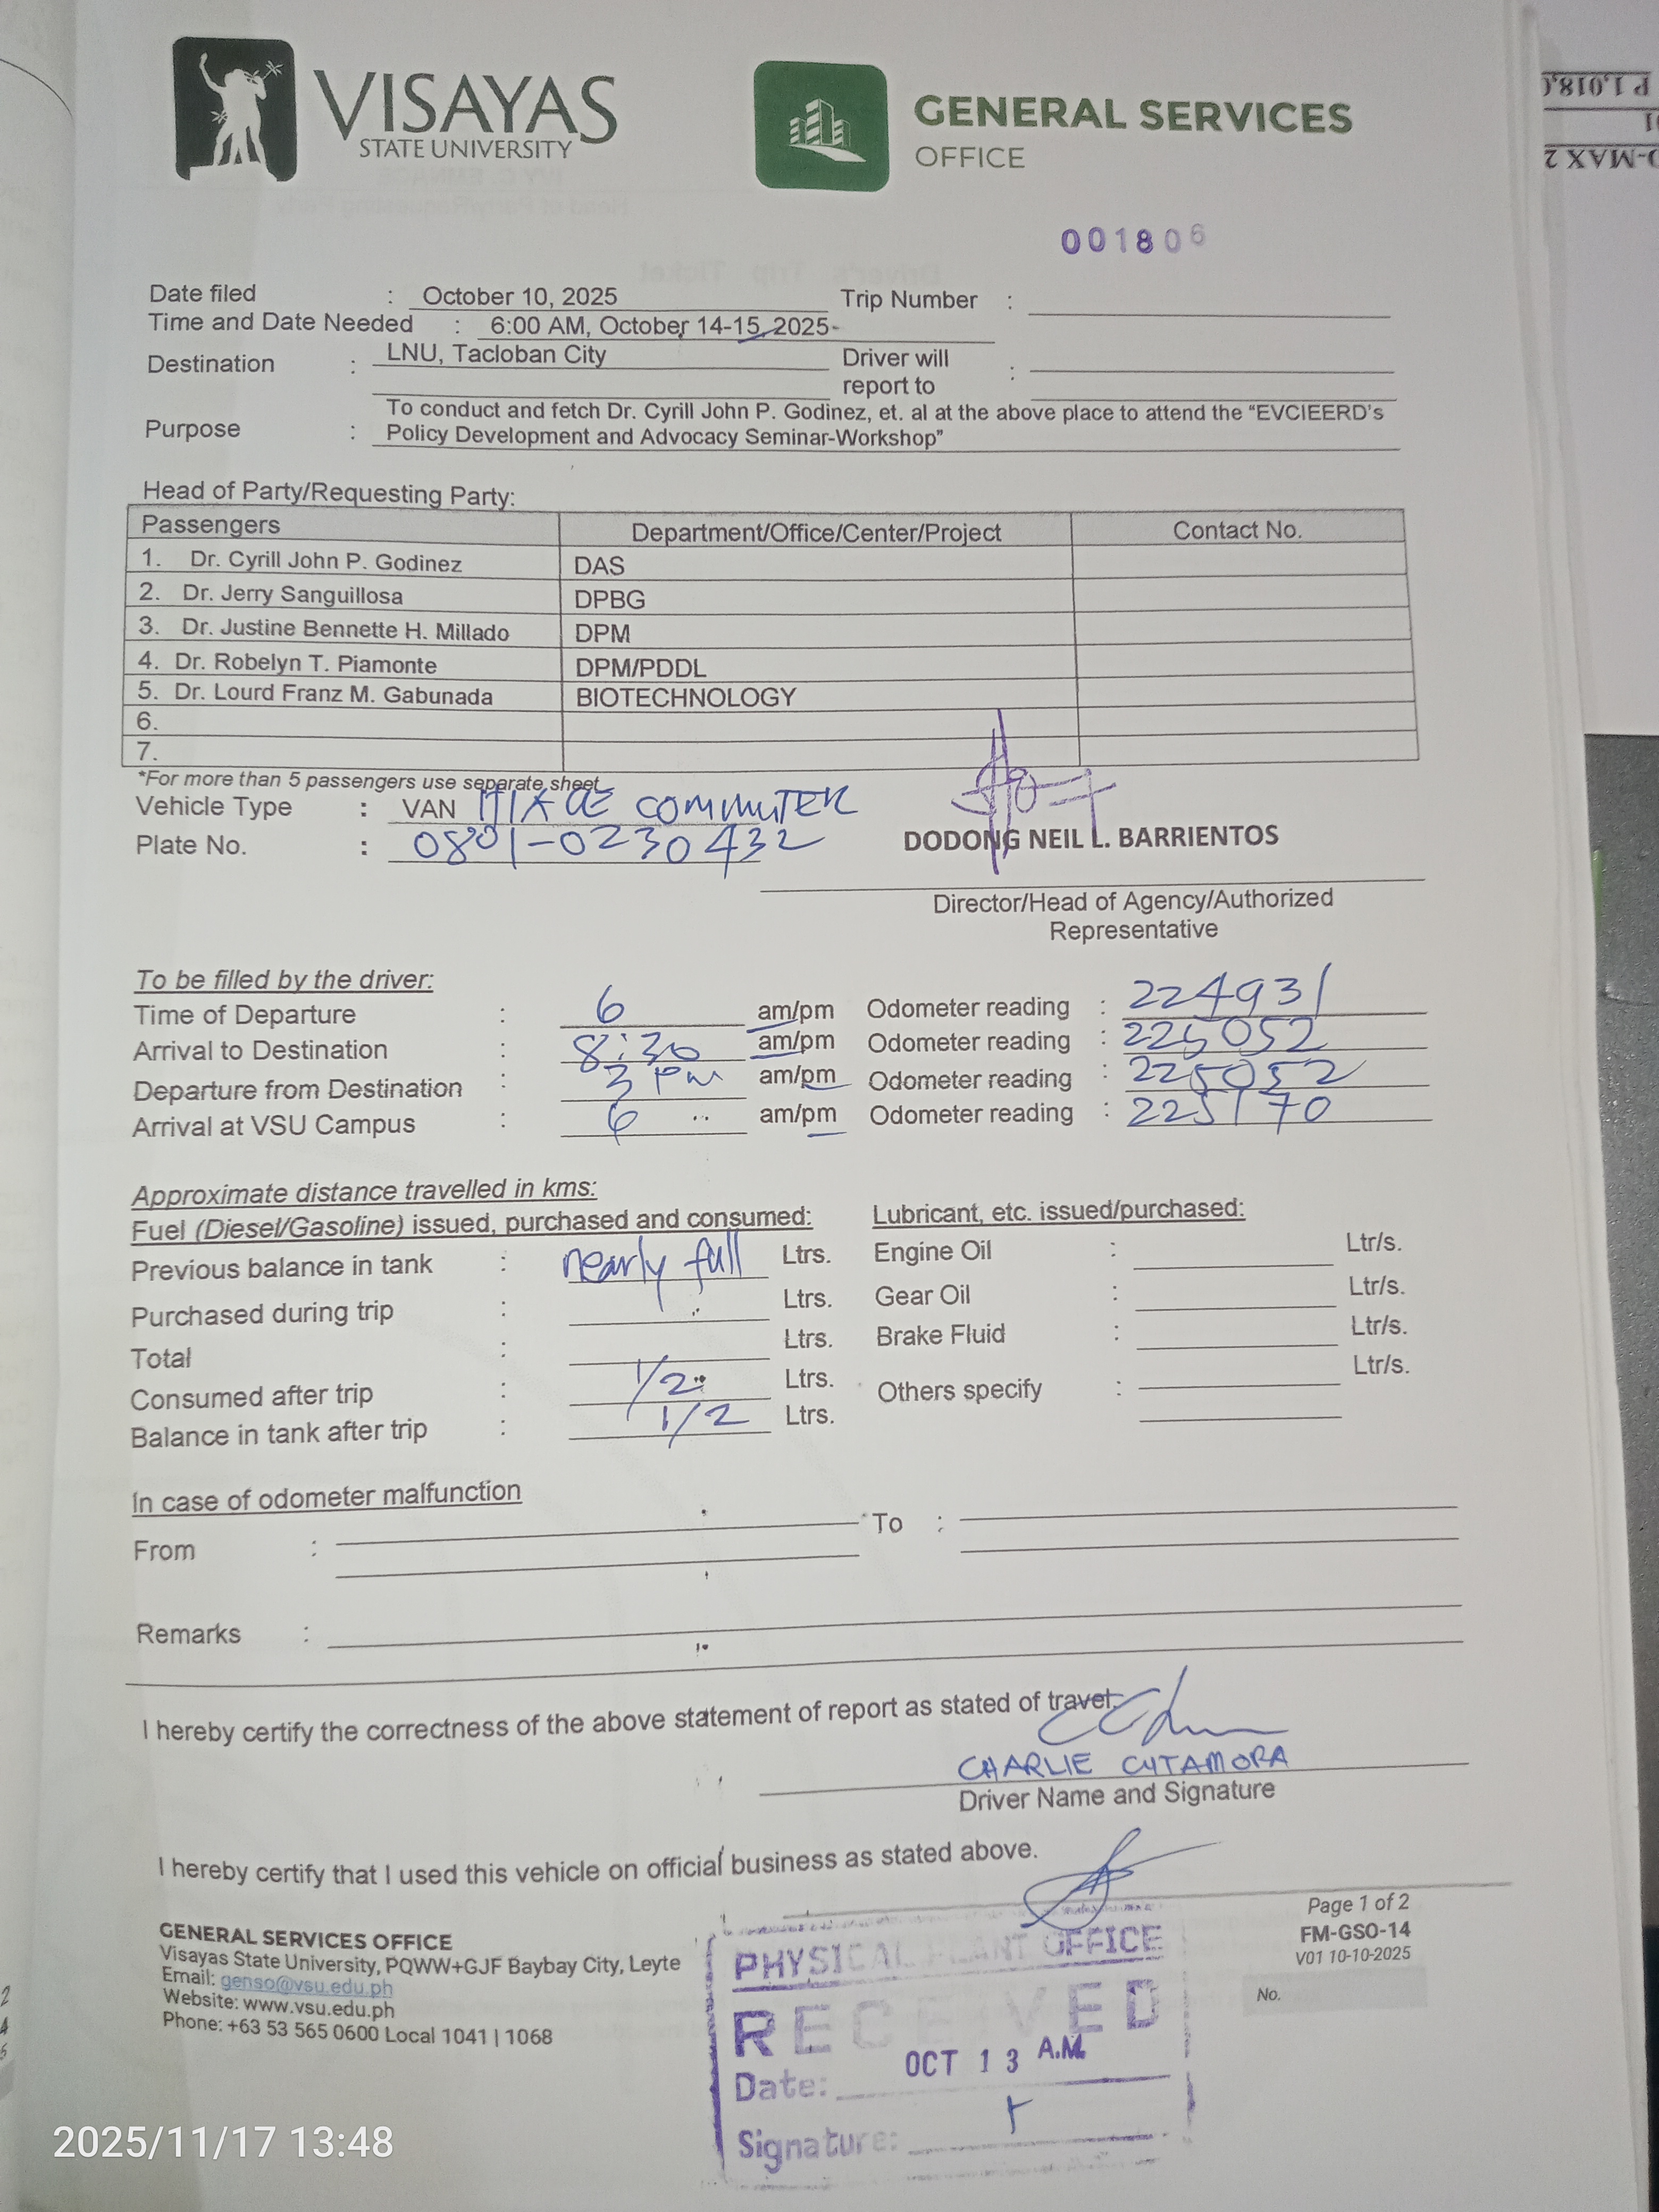 VISAYAS
STATE UNIVERSITY
GENERAL SERVICES
OFFICE
P 1,018,
D-MAX 2
001806
Date filed : October 10, 2025 Trip Number :
Time and Date Needed : 6:00 AM, October 14-15, 2025
Destination : LNU, Tacloban City Driver will report to :
Purpose : To conduct and fetch Dr. Cyrill John P. Godinez, et. al at the above place to attend the “EVCIEERD’s
Policy Development and Advocacy Seminar-Workshop”
Head of Party/Requesting Party:
Passengers Department/Office/Center/Project Contact No.
1. Dr. Cyrill John P. Godinez DAS
2. Dr. Jerry Sanguillosa DPBG
3. Dr. Justine Bennette H. Millado DPM
4. Dr. Robelyn T. Piamonte DPM/PDDL
5. Dr. Lourd Franz M. Gabunada BIOTECHNOLOGY
6.
7.
*For more than 5 passengers use separate sheet
Vehicle Type : VAN HIACE COMMUTER
Plate No. : 0801-0230432
DODONG NEIL L. BARRIENTOS
Director/Head of Agency/Authorized
Representative
To be filled by the driver:
Time of Departure : 6 am/pm Odometer reading : 224931
Arrival to Destination : 8:30 am/pm Odometer reading : 225052
Departure from Destination : 3 pm am/pm Odometer reading : 225052
Arrival at VSU Campus : 6 am/pm Odometer reading : 225170
Approximate distance travelled in kms:
Fuel (Diesel/Gasoline) issued, purchased and consumed: Lubricant, etc. issued/purchased:
Previous balance in tank : nearly full Ltrs. Engine Oil : Ltr/s.
Purchased during trip : Ltrs. Gear Oil : Ltr/s.
Total : Ltrs. Brake Fluid : Ltr/s.
Consumed after trip : 1/2 Ltrs. Others specify : Ltr/s.
Balance in tank after trip : 1/2 Ltrs.
In case of odometer malfunction
From : To :
Remarks :
I hereby certify the correctness of the above statement of report as stated of travel.
CHARLIE CUTAMORA
Driver Name and Signature
I hereby certify that I used this vehicle on official business as stated above.
GENERAL SERVICES OFFICE
Visayas State University, PQWW+GJF Baybay City, Leyte
Email: genso@vsu.edu.ph
Website: www.vsu.edu.ph
Phone: +63 53 565 0600 Local 1041 | 1068
PHYSICAL PLANT OFFICE
RECEIVED
Date: OCT 13 A.M.
Signature:
Page 1 of 2
FM-GSO-14
V01 10-10-2025
No.
2025/11/17 13:48